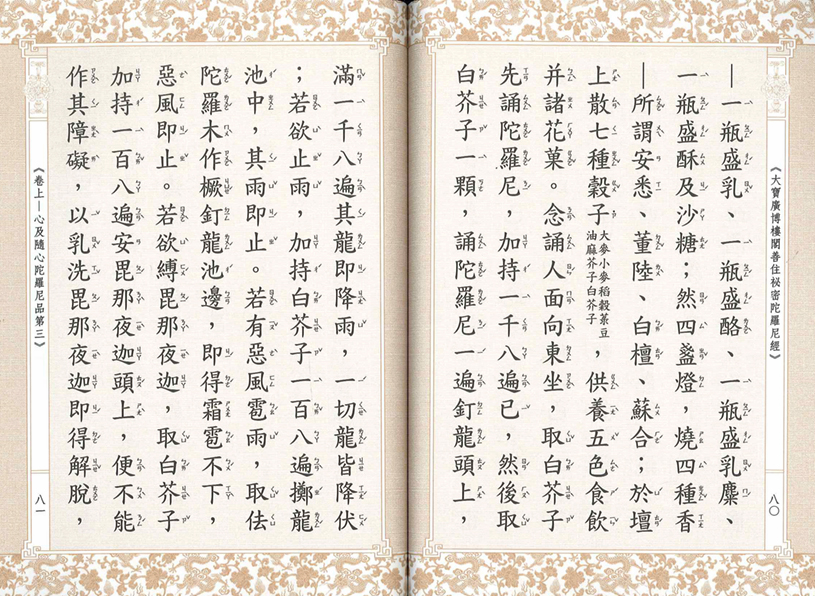 《大寶廣博樓閣善住祕密陀羅尼經》
八〇
—一瓶盛乳、一瓶盛酪、一瓶盛乳麋、
一瓶盛酥及沙糖；然四盞燈，燒四種香
—所謂安悉、董陸、白檀、蘇合；於壇
上散七種穀子大麥小麥稻穀菉豆油麻芥子白芥子，供養五色食飲
并諸花菓。念誦人面向東坐，取白芥子
先誦陀羅尼，加持一千八遍已，然後取
白芥子一顆，誦陀羅尼一遍釘龍頭上，
滿一千八遍其龍即降雨，一切龍皆降伏
；若欲止雨，加持白芥子一百八遍擲龍
池中，其雨即止。若有惡風雹雨，取佉
陀羅木作橛釘龍池邊，即得霜雹不下，
惡風即止。若欲縛毘那夜迦，取白芥子
加持一百八遍安毘那夜迦頭上，便不能
作其障礙，以乳洗毘那夜迦即得解脫，
《卷上—心及隨心陀羅尼品第三》
八一